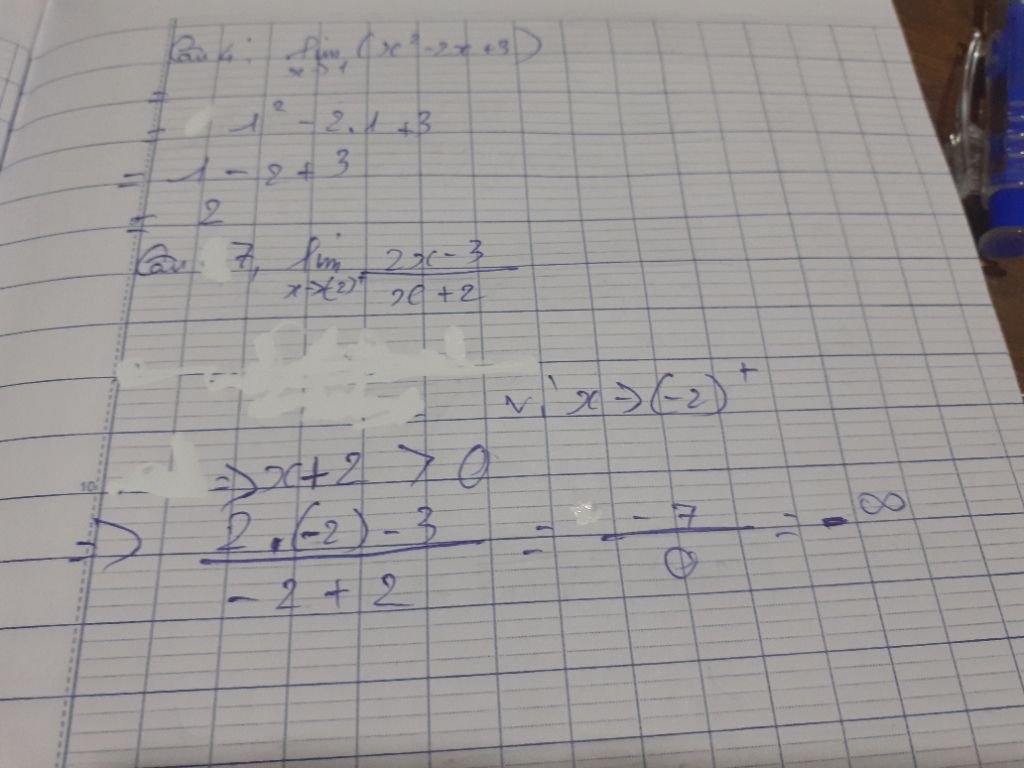 Câu 4: lim x→1 (x² - 2x + 3)
=
= 1² - 2.1 + 3
= 1 - 2 + 3
= 2
Câu 7, lim x→(-2)⁺ (2x - 3)/(x + 2)
vì x → (-2)⁺
⇒ x + 2 > 0
⇒ (2.(-2) - 3)/(-2 + 2) = -7/0 = -∞